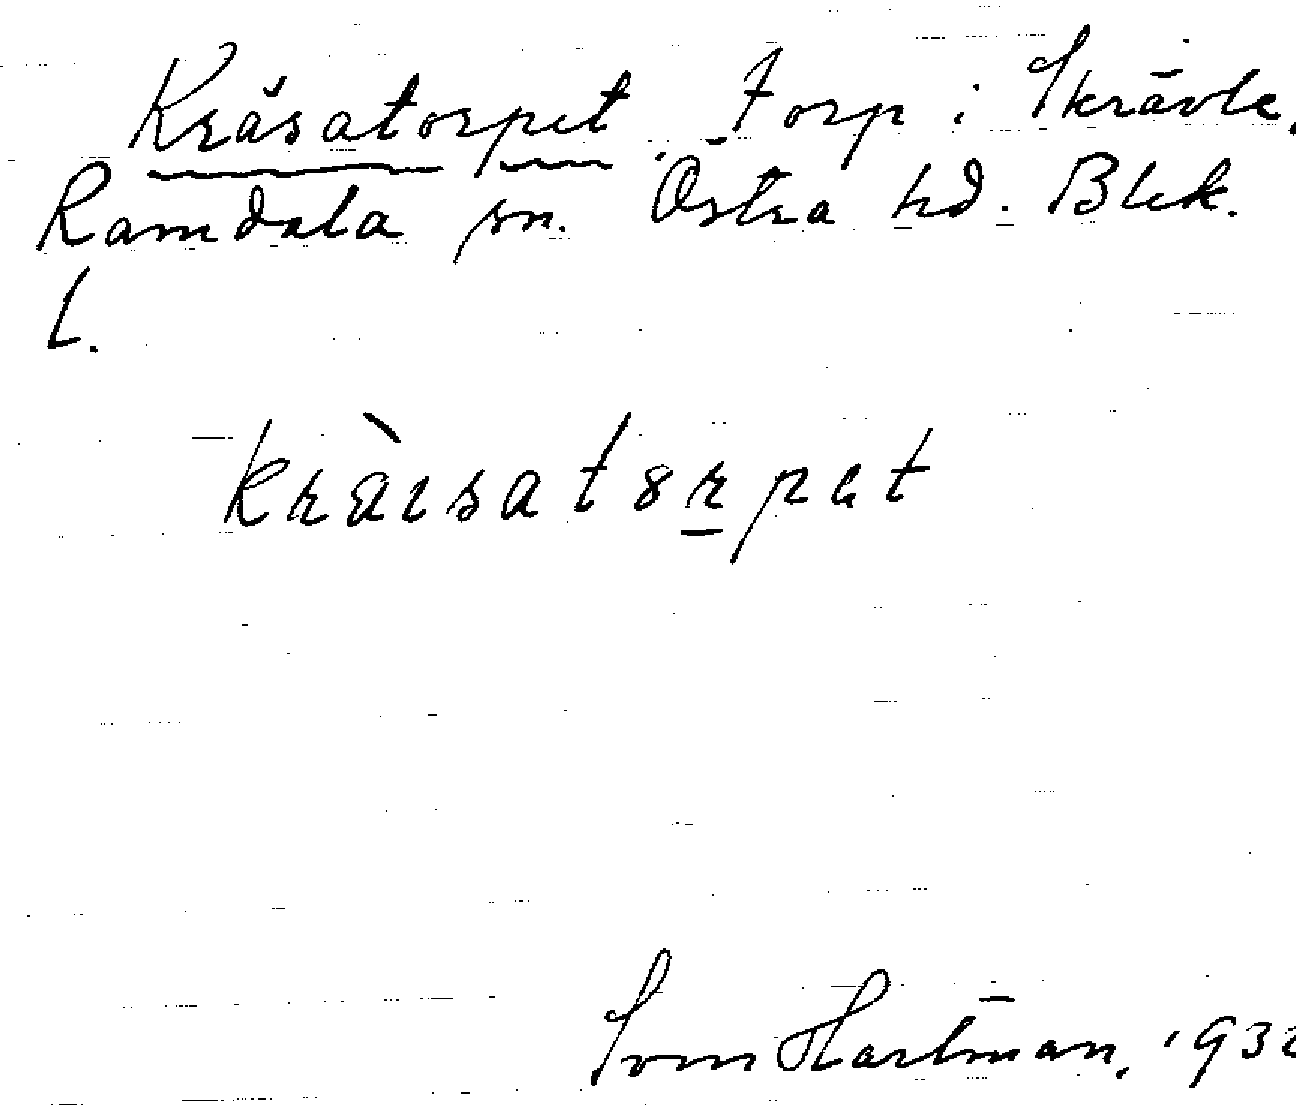 Kråsatorpet Torp i Skrävle,
Ramdala sn. Östra hd. Blek.
L.
kràısatorpet
Sven Hartman, 193